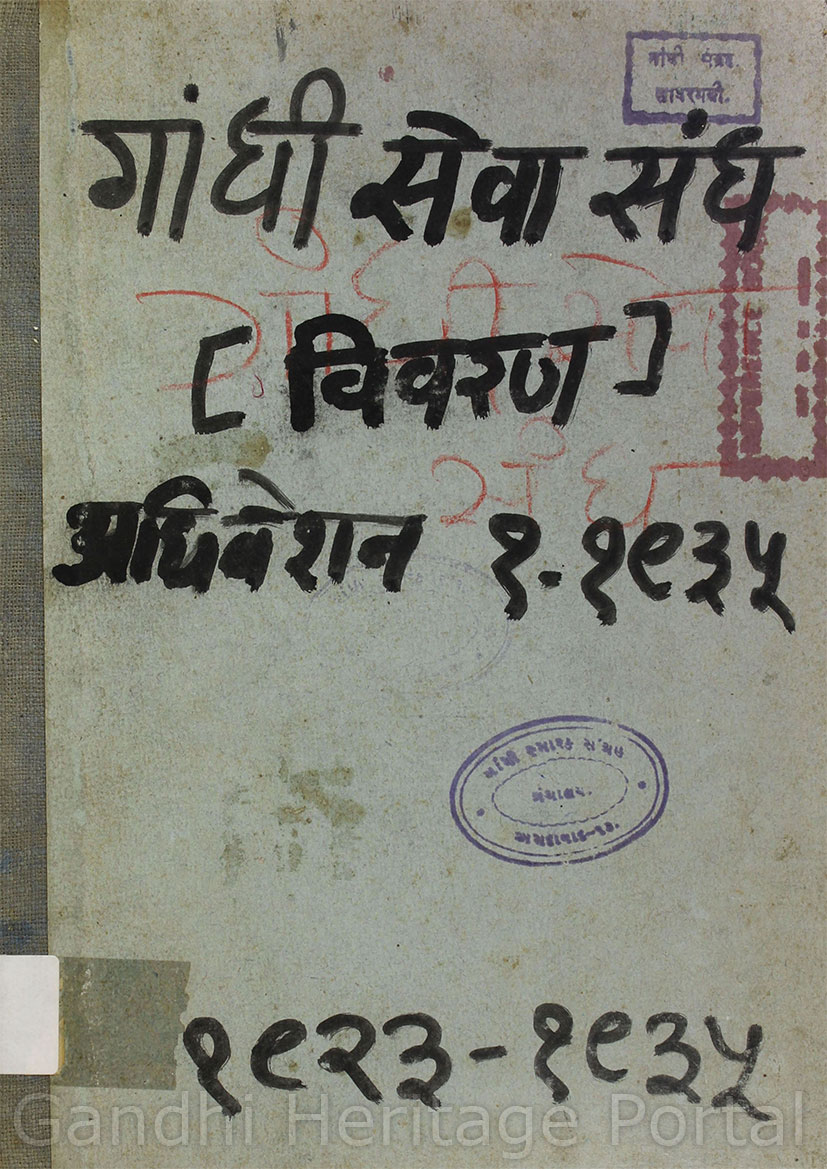 ગાંધી સંગ્રહ.
સાબરમતી.
गांधी सेवा संघ
[ विवरण ]
गांधी सेवा
संघ
अधिवेशन १-१९३५
ગાંધી સ્મારક સંગ્રહ
ગ્રંથાલય.
અમદાવાદ-૧૩.
१९२३-१९३५
Gandhi Heritage Portal